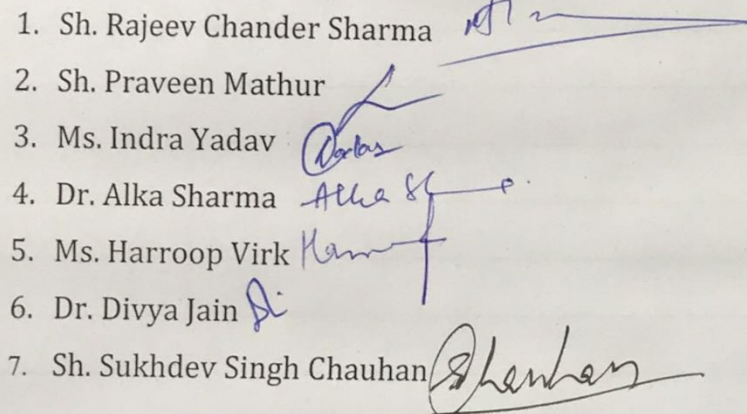 1. Sh. Rajeev Chander Sharma
2. Sh. Praveen Mathur
3. Ms. Indra Yadav
4. Dr. Alka Sharma Alka
5. Ms. Harroop Virk
6. Dr. Divya Jain
7. Sh. Sukhdev Singh Chauhan